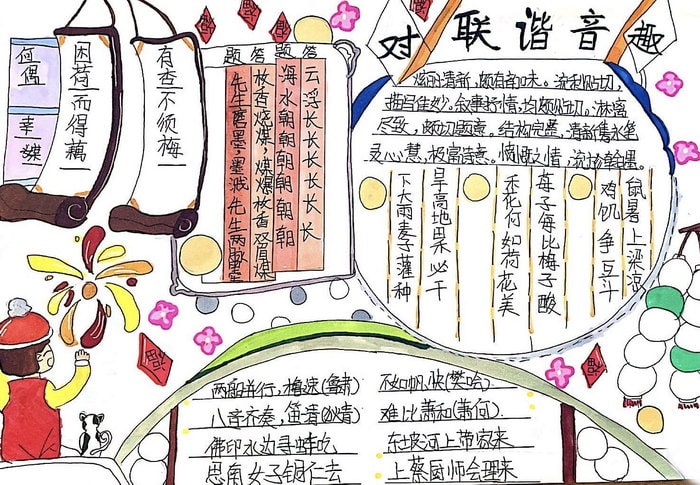 对联谐音趣
何偶
幸媒
困荷而得藕
有杏不须梅
题 答 题 答
云浮长长长长长长长
海水朝朝朝朝朝朝朝
枚香烧煤,煤爆枚香眉煤
先生磨墨,墨溅先生两墨
清新,颇有韵味。流利贴切,
描写佳妙。叙事抒情,均颇贴切。淋漓
尽致,颇切题意。结构完整,清新隽永笔
灵心慧,极富诗意。情,流翰墨。
鼠暑上梁凉
鸡饥争豆斗
每子每比梅子酸
禾花何如荷花美
旱高地果必干
下大雨麦子灌种
两船并行,橹速(鲁肃) 不如帆快(樊哙)
八音齐奏,笛清(狄青) 难比萧和(萧何)
佛印水边寻蚌吃 东坡河上带家来
思角女子铜仁去 上蔡厨师会理来